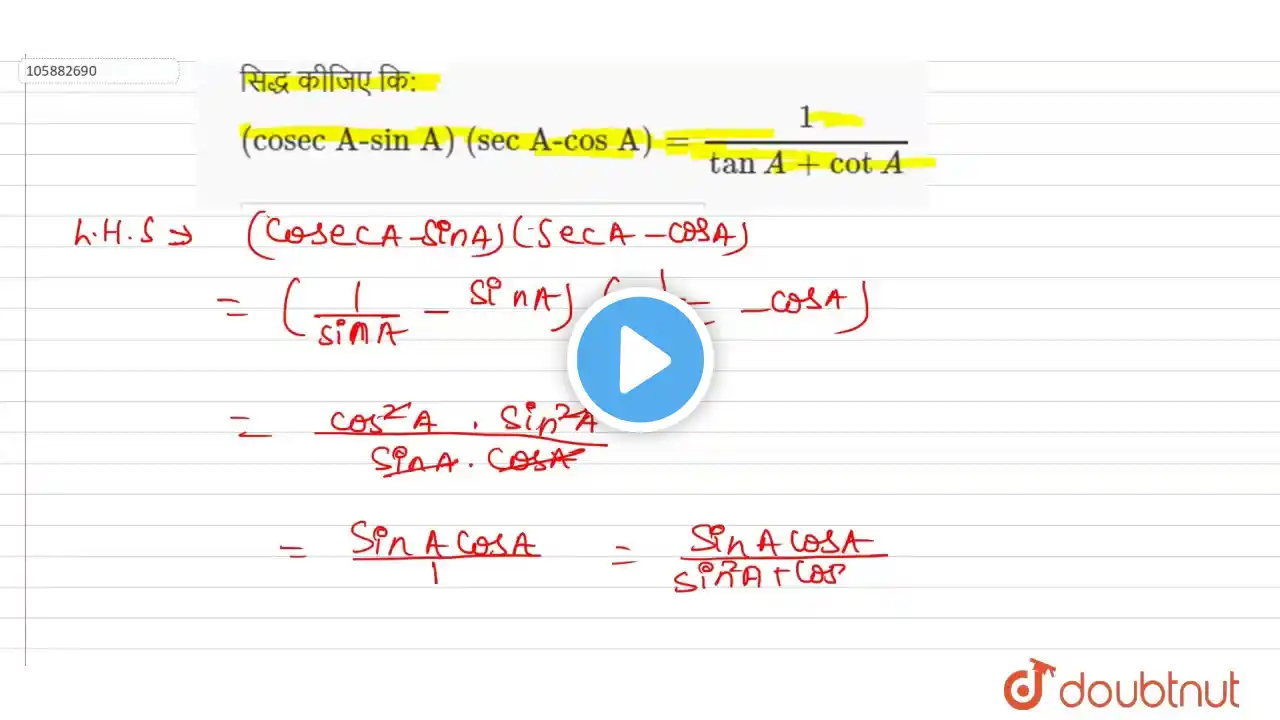 105882690
सिद्ध कीजिए कि:
(cosec A-sin A) (sec A-cos A) = 1 / (tan A + cot A)
L.H.S ⇒ (CosecA - SinA) (SecA - CosA)
= (1/SinA - SinA) ( 1 - CosA)
= cos²A . Sin²A / SinA . CosA
= SinA CosA / 1 = SinA CosA / Sin²A + Cos
doubtnut